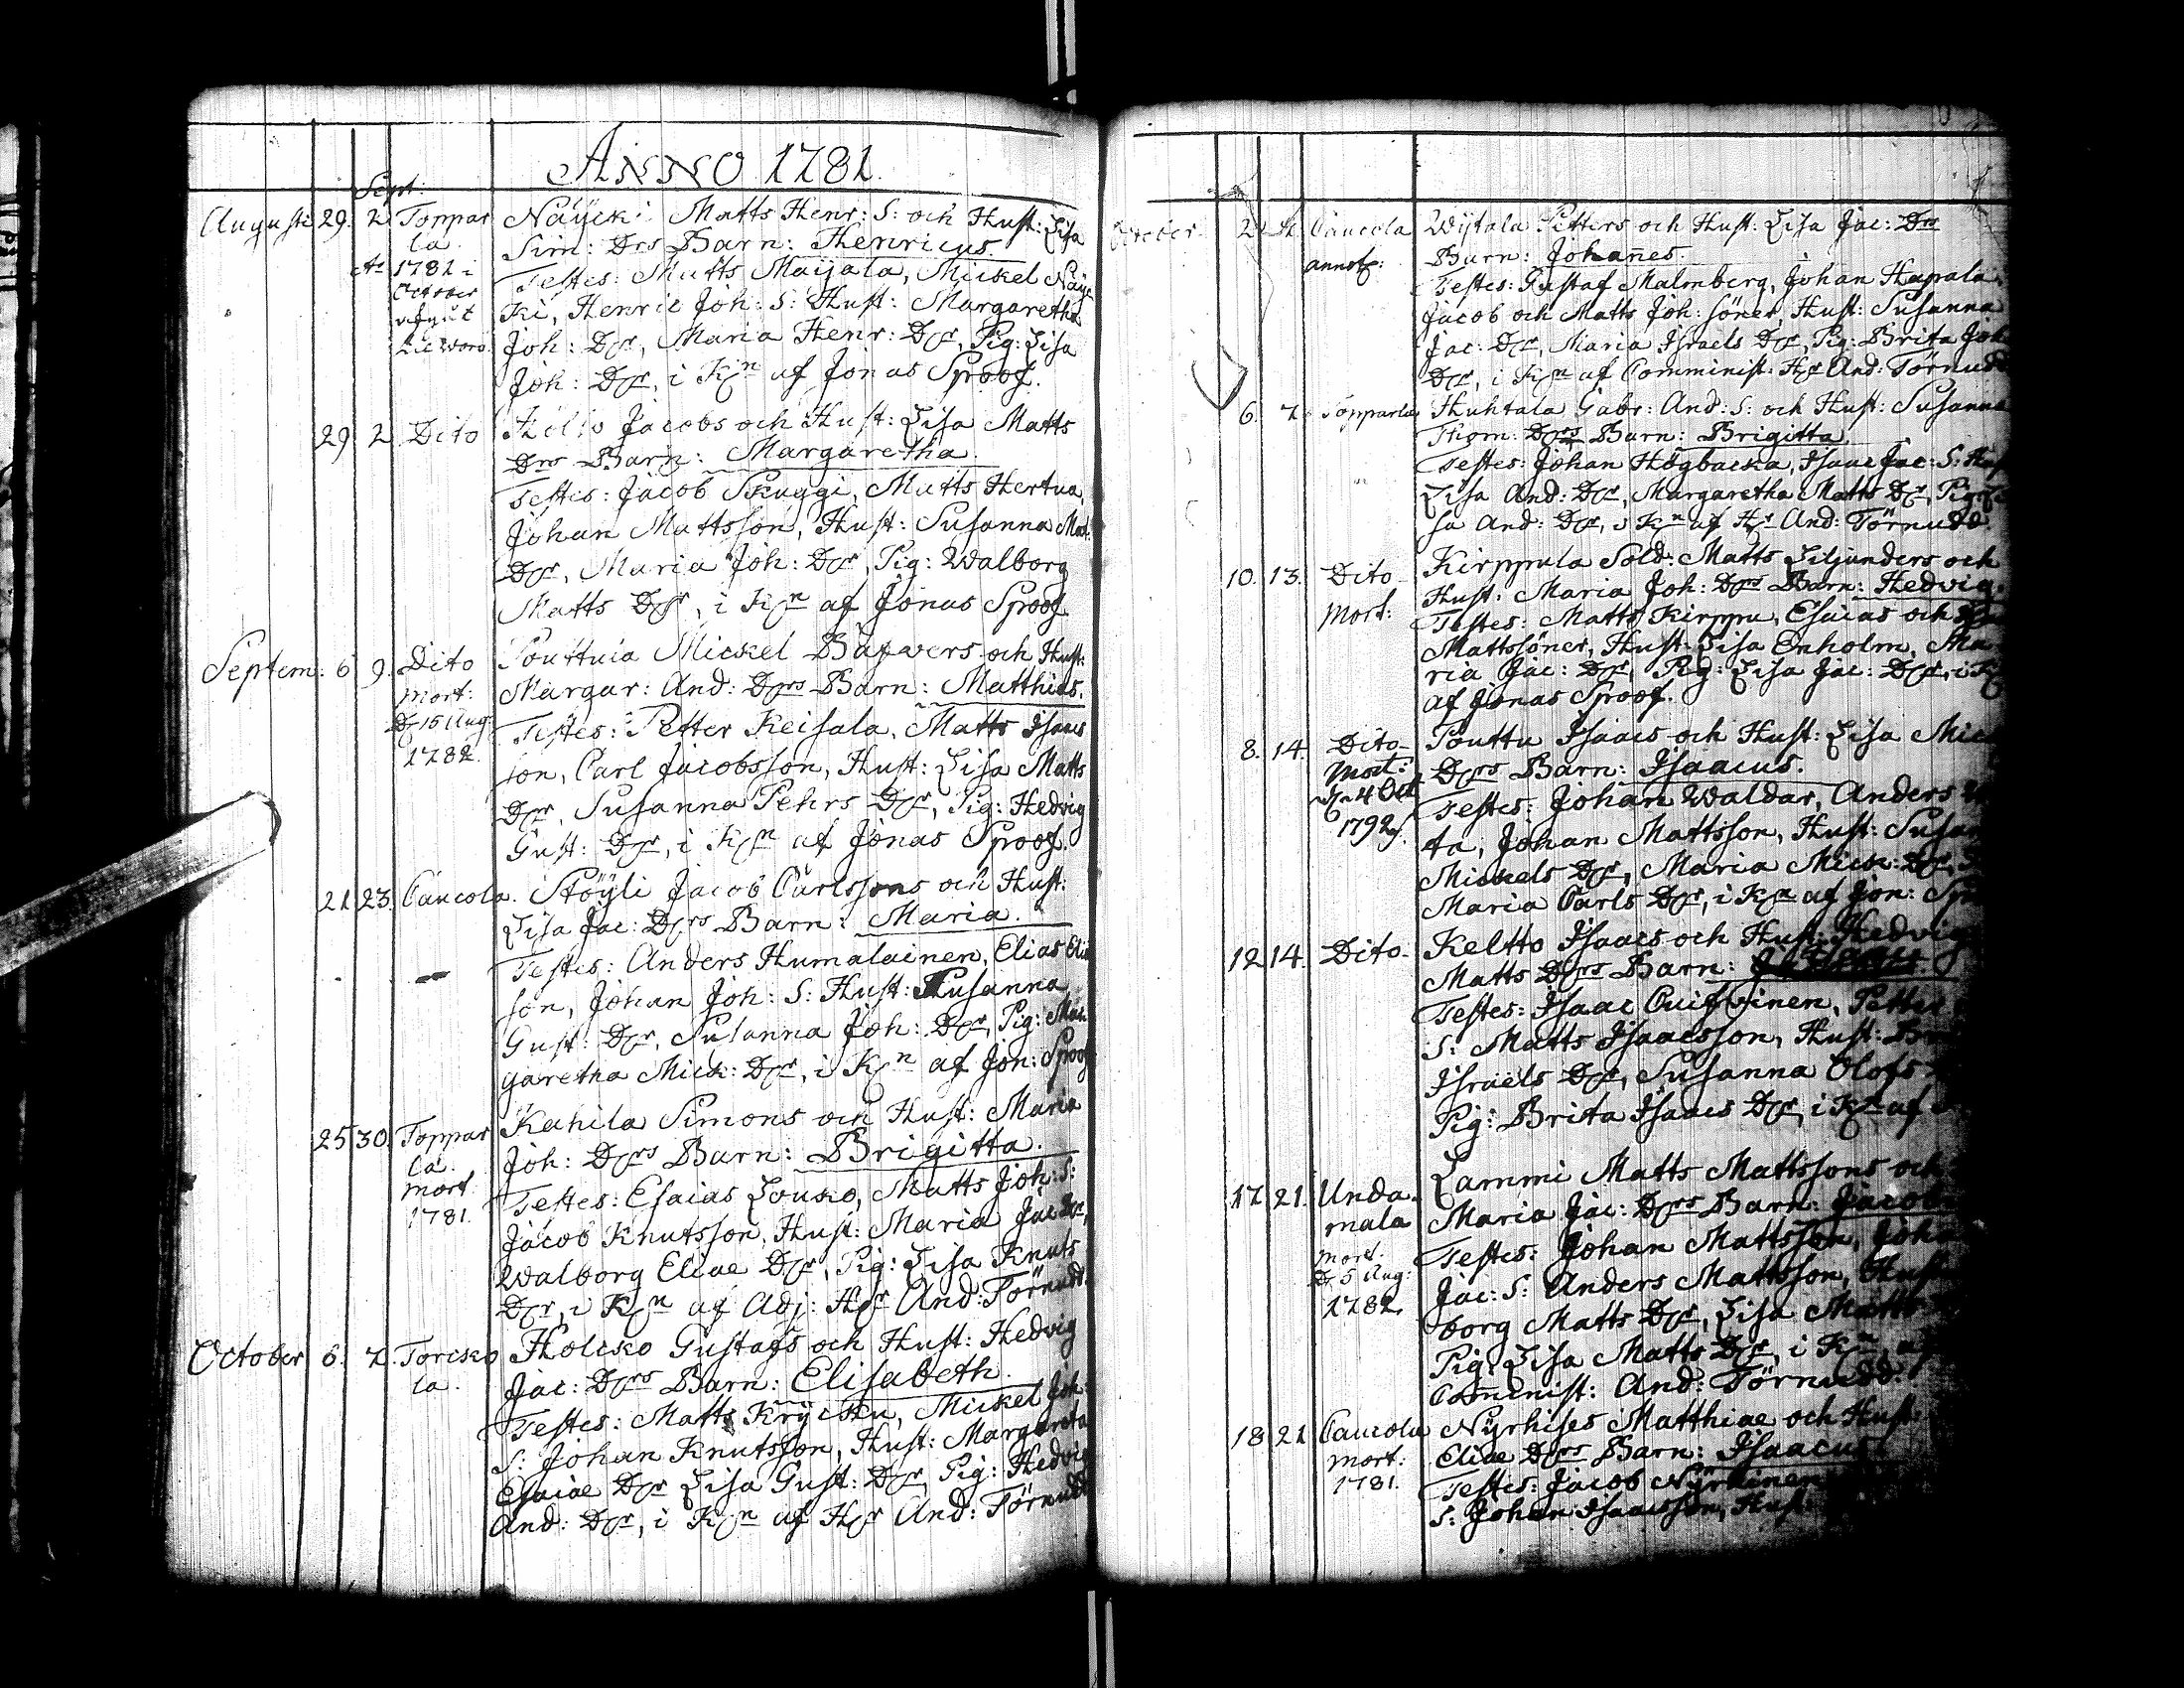 ANNO 1781.
Sept:
Augusti 29. 2 Toppar Näÿcki Matts Henr: S: och Hust: Lisa
la. Sim: Drs Barn: Henricus.
Ao 1781 i Testes: Matts Maijala, Mickel Näÿc
October ki, Henric Joh: S: Hust: Margaretha
Joh: Dr, Maria Henr: Dr, Pig: Lisa
Joh: Dr, i Kn af Jonas Sproof.
29 2 Dito Jacobs och Hust: Lisa Matts
Drs Barn: Margaretha.
Testes: Jacob Skuggi, Matts Hertua,
Johan Mattsson, Hust: Susanna Mat:
Dr, Maria Joh: Dr, Pig: Walborg
Matts Dr, i Kn af Jonas Sproof
Septem: 6 9. Dito Mickel och Hust:
mort: Margar: And: Drs Barn: Matthias.
D 15 Aug: Testes: Petter Keisala, Matts Isaacs
1782. son, Carl Jacobsson, Hust: Lisa Matts
Dr, Susanna Pehrs Dr, Pig: Hedvig
Gust: Dr, i Kn af Jonas Sproof.
21 23. Caucola. Stöÿli Jacob Carlssons och Hust:
Lisa Jac: Drs Barn: Maria.
Testes: Anders Humalainen, Elias Elia
son, Johan Joh: S: Hust: Susanna
Gust: Dr, Susanna Joh: Dr, Pig: Mar
garetha Mick: Dr, i Kn af Jon: Sproof
25 30. Toppar Kahila Simons och Hust: Maria
la. Joh: Drs Barn: Brigitta.
mort Testes: Esaias Lousko, Matts Joh: S:
1781. Jacob Knutsson, Hust: Maria Jac: Dr,
Walborg Eliae Dr, Pig: Lisa Knuts
Dr, i Kn af Adj: Hr And: Törnudd.
October 6. 7. Torcko Holcko Gustafs och Hust: Hedvig
la. Jac: Drs Barn: Elisabeth.
Testes: Matts Krÿcku, Mickel Joh:
S: Johan Knutsson, Hust: Margareta
Esaiae Dr Lisa Gust: Dr, Pig: Hedvig
And: Dr, i Kn af Hr And: Törnudd
October. 2. Caucola Wijtala Petters och Hust: Lisa Jac: Drs
annot: Barn: Johanes.
Testes: Gustaf Malmberg, Johan Hapala,
Jacob och Matts Joh: söner, Hust: Susanna
Jac: Dr, Maria Israels Dr, Pig: Brita Joh:
Dr, i Kn af Comminist: Hr And: Törnudd
6. 7. Topparla Huhtala Gabr: And: S: och Hust: Susanna
Thom: Drs Barn: Brigitta.
Testes: Johan Högbacka, Isaac Jac: S: Hust
Lisa And: Dr, Margaretha Matts Dr, Pig: Li
sa And: Dr, i Kn af Hr And: Törnudd.
10. 13. Dito Kirppula Sold: Matts Liljunders och
mort: Hust: Maria Joh: Drs Barn: Hedvig.
Testes: Matts Kirppu, Esaias och
Mattsöner, Hust: Lisa Enholm, Ma
ria Jac: Dr, Pig: Lisa Jac: Dr, i Kn
af Jonas Sproof.
8. 14. Dito Pouttu Isaacs och Hust: Lisa Mick
mort: Drs Barn: Isaacus.
4 Oct Testes: Johan Waldar, Anders
1792. ta, Johan Mattsson, Hust: Susan
Mickels Dr, Maria Mick: Dr,
Maria Carls Dr, i Kn af Jon: Spr
12 14. Dito Keltto Isaacs och Hust: Hedvig
Matts Drs Barn:
Testes: Isaac Cuifvinen, Petter
S: Matts Isaacsson, Hust:
Israels Dr, Susanna Olofs
Pig: Brita Isaacs Dr, i Kn af
17 21. Unda Lammi Matts Mattssons och
mala Maria Jac: Drs Barn: Jacob
mort. Testes: Johan Mattsson, Joha
D. 5 Aug: Jac: S: Anders Mattsson, Hust
1782. borg Matts Dr, Lisa Matts
Pig: Lisa Matts Dr, i Kn af
Comminist: And: Törnudd.
18 21 Caucola Nÿrhises Matthiae och Hust:
mort: Eliae Drs Barn: Isaacus.
1781. Testes: Jacob Nÿrhinen
S: Johan Isaacsson, Hust: